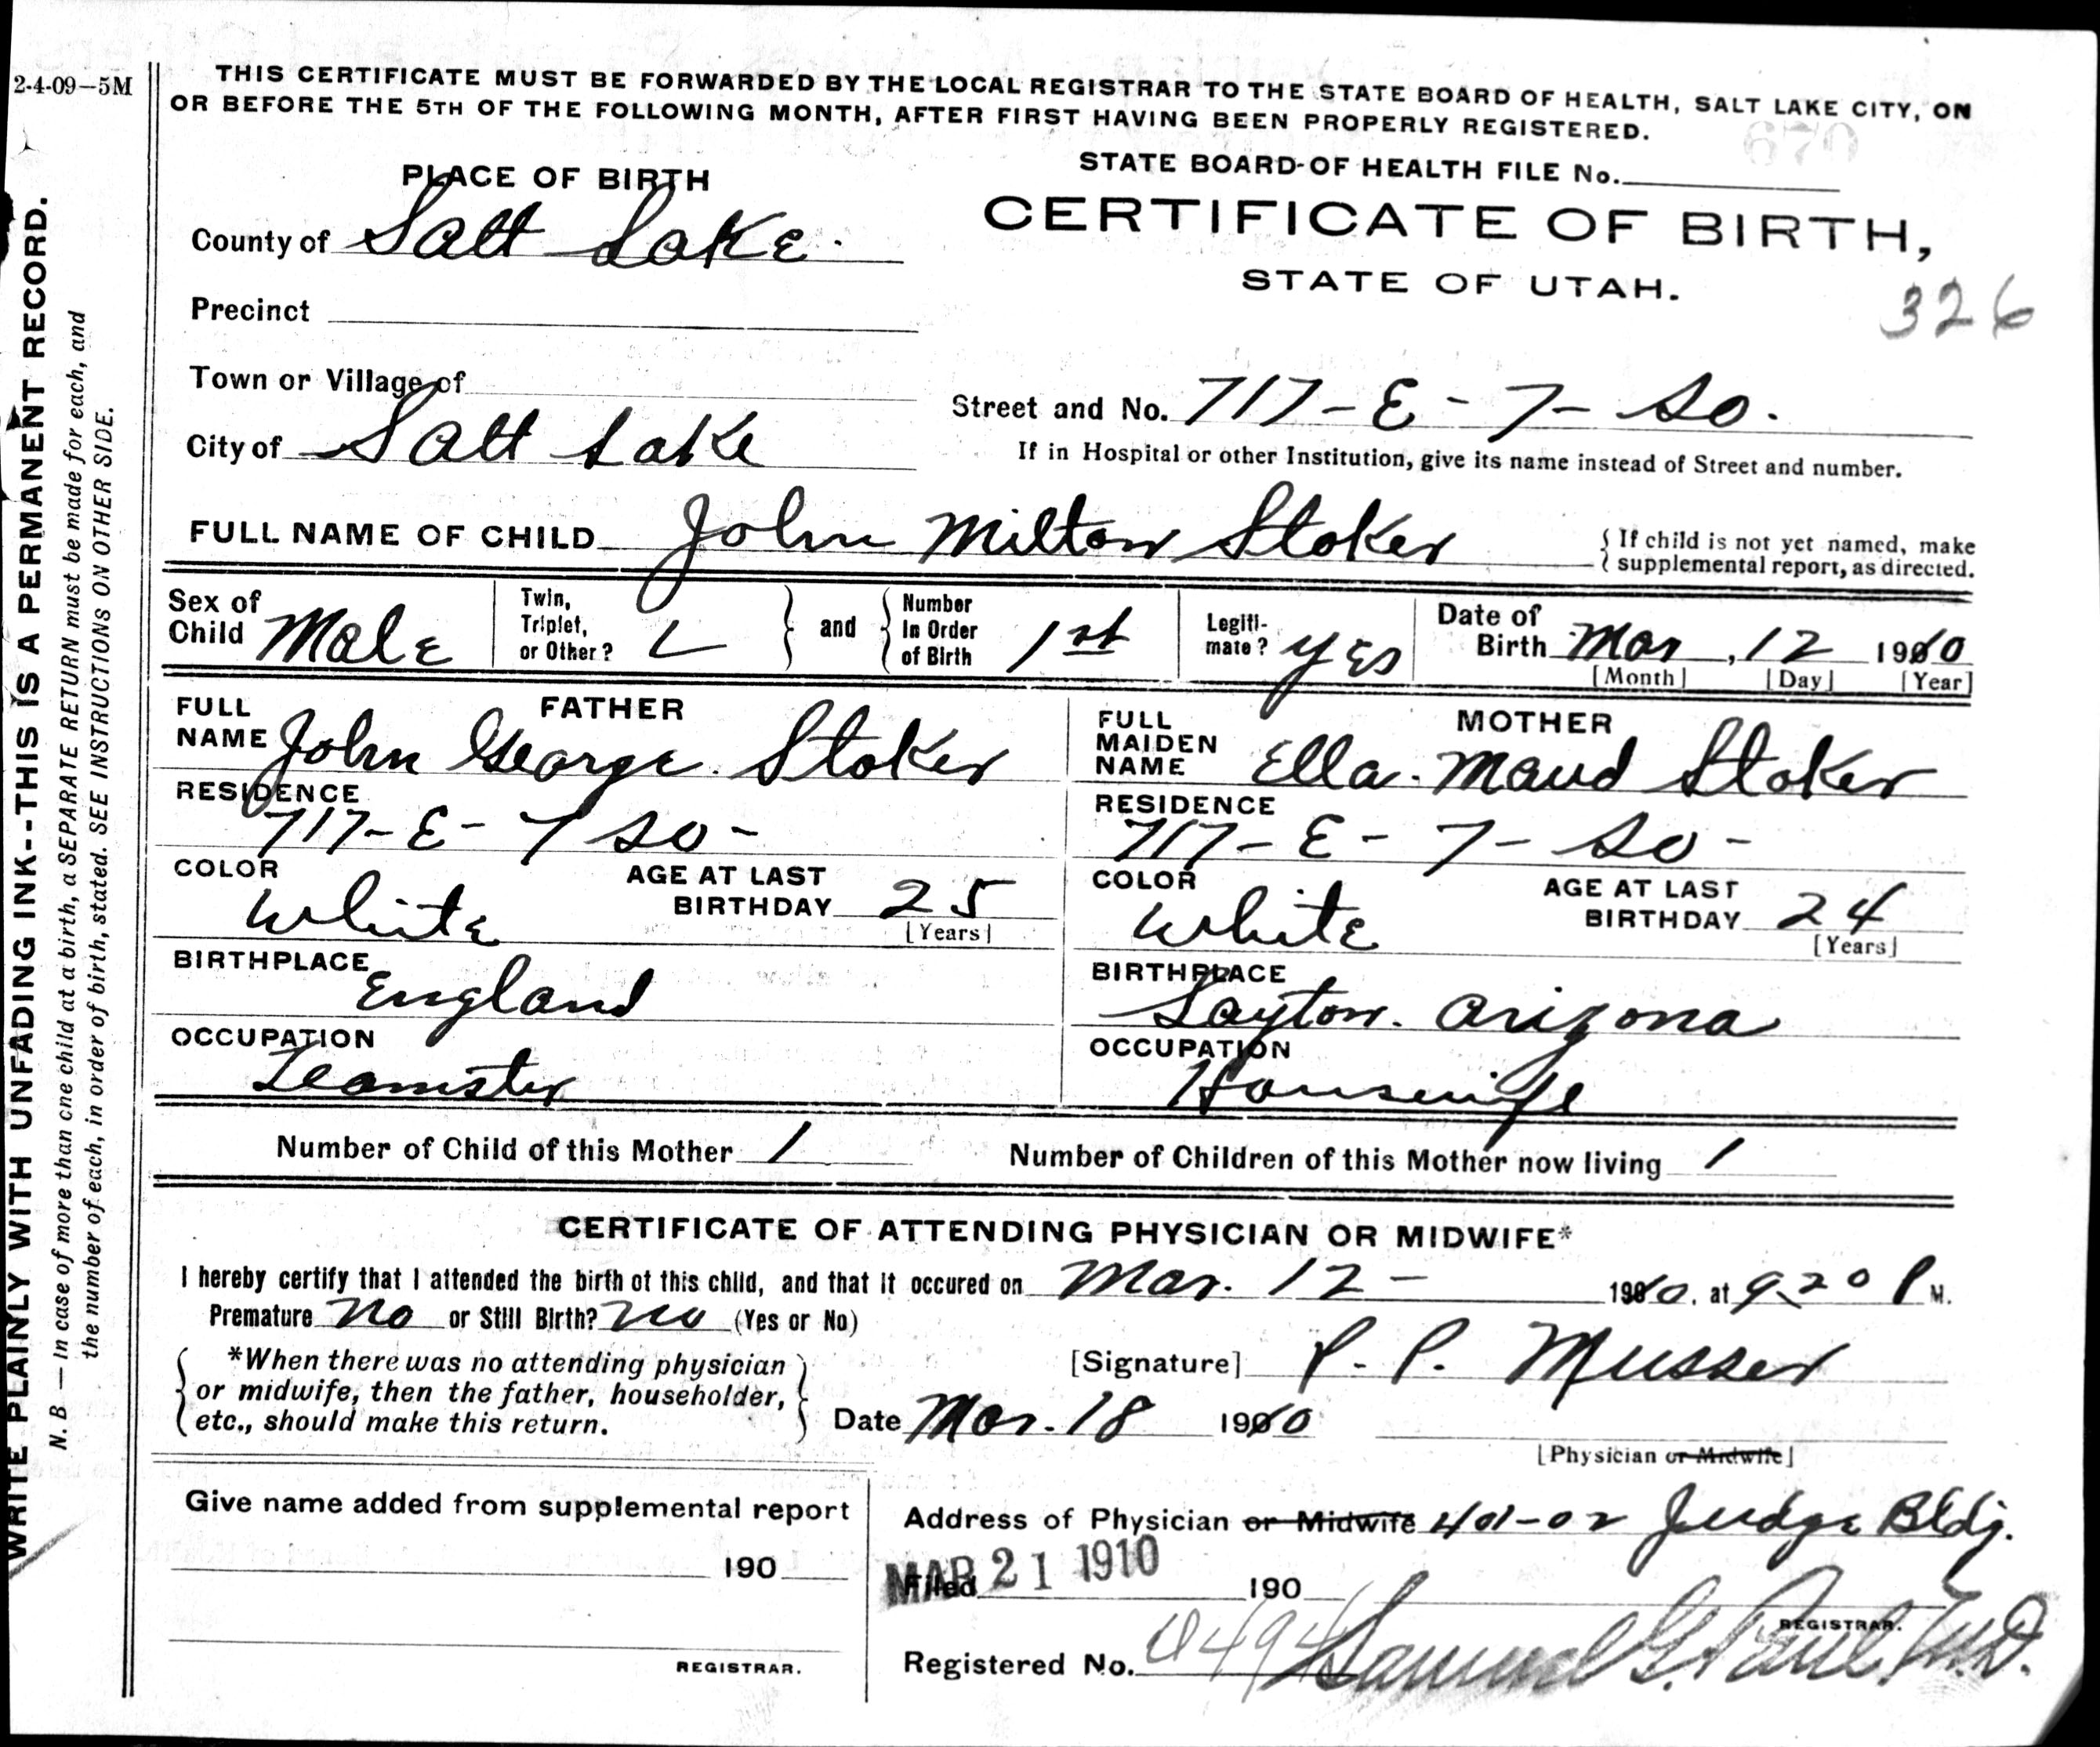 2-4-09—5M
THIS CERTIFICATE MUST BE FORWARDED BY THE LOCAL REGISTRAR TO THE STATE BOARD OF HEALTH, SALT LAKE CITY, ON
OR BEFORE THE 5TH OF THE FOLLOWING MONTH, AFTER FIRST HAVING BEEN PROPERLY REGISTERED.
670
STATE BOARD OF HEALTH FILE No.
PLACE OF BIRTH
CERTIFICATE OF BIRTH,
STATE OF UTAH.
326
County of Salt Lake.
Precinct
Town or Village of
Street and No. 717-E-7-So.
City of Salt Lake
If in Hospital or other Institution, give its name instead of Street and number.
FULL NAME OF CHILD John Milton Stoker
{ If child is not yet named, make
supplemental report, as directed.
Sex of Child Male
Twin, Triplet, or Other?
and
Number In Order of Birth 1st
Legiti-mate? Yes
Date of Birth Mar, 12 1910
[Month] [Day] [Year]
FATHER
FULL NAME John George Stoker
RESIDENCE
717-E-7 So-
COLOR White
AGE AT LAST BIRTHDAY 25
[Years]
BIRTHPLACE England
OCCUPATION
Teamster
MOTHER
FULL MAIDEN NAME Ella. Maud Stoker
RESIDENCE
717-E-7-So-
COLOR White
AGE AT LAST BIRTHDAY 24
[Years]
BIRTHPLACE
Layton. Arizona
OCCUPATION
Housewife
Number of Child of this Mother 1
Number of Children of this Mother now living 1
CERTIFICATE OF ATTENDING PHYSICIAN OR MIDWIFE*
I hereby certify that I attended the birth of this child, and that it occured on Mar. 12- 1910, at 9.20 P M.
Premature No or Still Birth? No (Yes or No)
*When there was no attending physician
or midwife, then the father, householder,
etc., should make this return.
[Signature] P. P. Musser
Date Mar. 18 1910
[Physician or Midwife]
Give name added from supplemental report
190
REGISTRAR.
Address of Physician or Midwife 401-02 Judge Bldg.
Filed MAR 21 1910 190
REGISTRAR.
Registered No. 0494 Samuel G. Paul M.D.
WRITE PLAINLY WITH UNFADING INK--THIS IS A PERMANENT RECORD.
N. B — In case of more than one child at a birth, a SEPARATE RETURN must be made for each, and
the number of each, in order of birth, stated. SEE INSTRUCTIONS ON OTHER SIDE.